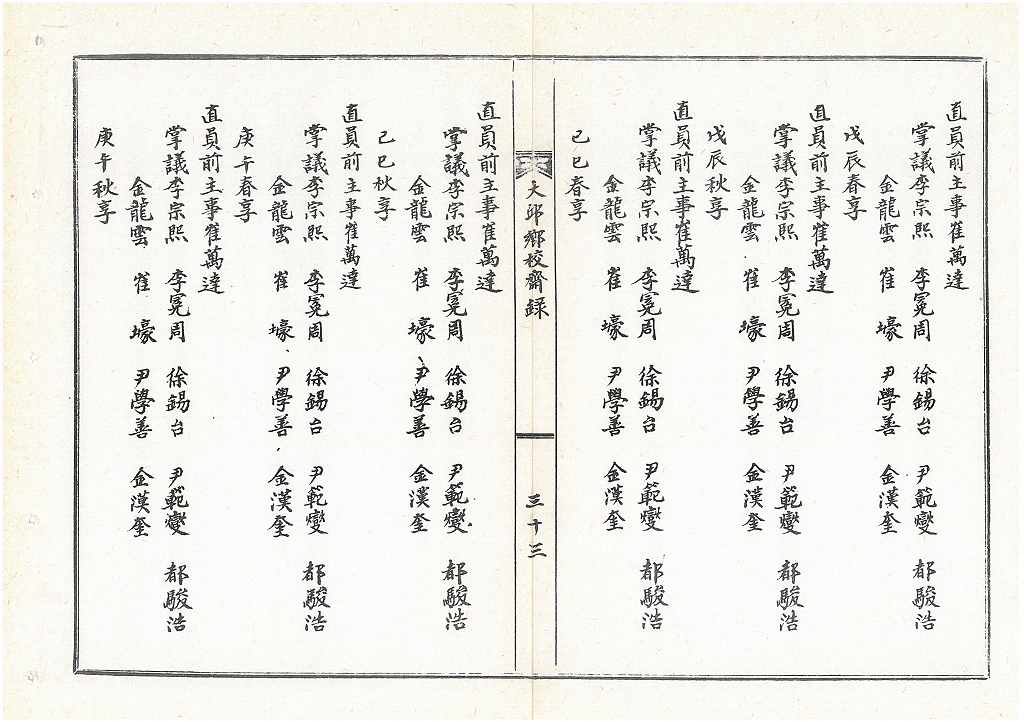 直員前主事崔萬達
掌議李宗熙 李冕周 徐錫台 尹範燮 都駿浩
金龍雲 崔壕 尹學善 金漢奎
戊辰春享
直員前主事崔萬達
掌議李宗熙 李冕周 徐錫台 尹範燮 都駿浩
金龍雲 崔壕 尹學善 金漢奎
戊辰秋享
直員前主事崔萬達
掌議李宗熙 李冕周 徐錫台 尹範燮 都駿浩
金龍雲 崔壕 尹學善 金漢奎
己巳春享
大邱鄉校齋録
三十三
直員前主事崔萬達
掌議李宗熙 李冕周 徐錫台 尹範燮 都駿浩
金龍雲 崔壕 尹學善 金漢奎
己巳秋享
直員前主事崔萬達
掌議李宗熙 李冕周 徐錫台 尹範燮 都駿浩
金龍雲 崔壕 尹學善 金漢奎
庚午春享
直員前主事崔萬達
掌議李宗熙 李冕周 徐錫台 尹範燮 都駿浩
金龍雲 崔壕 尹學善 金漢奎
庚午秋享